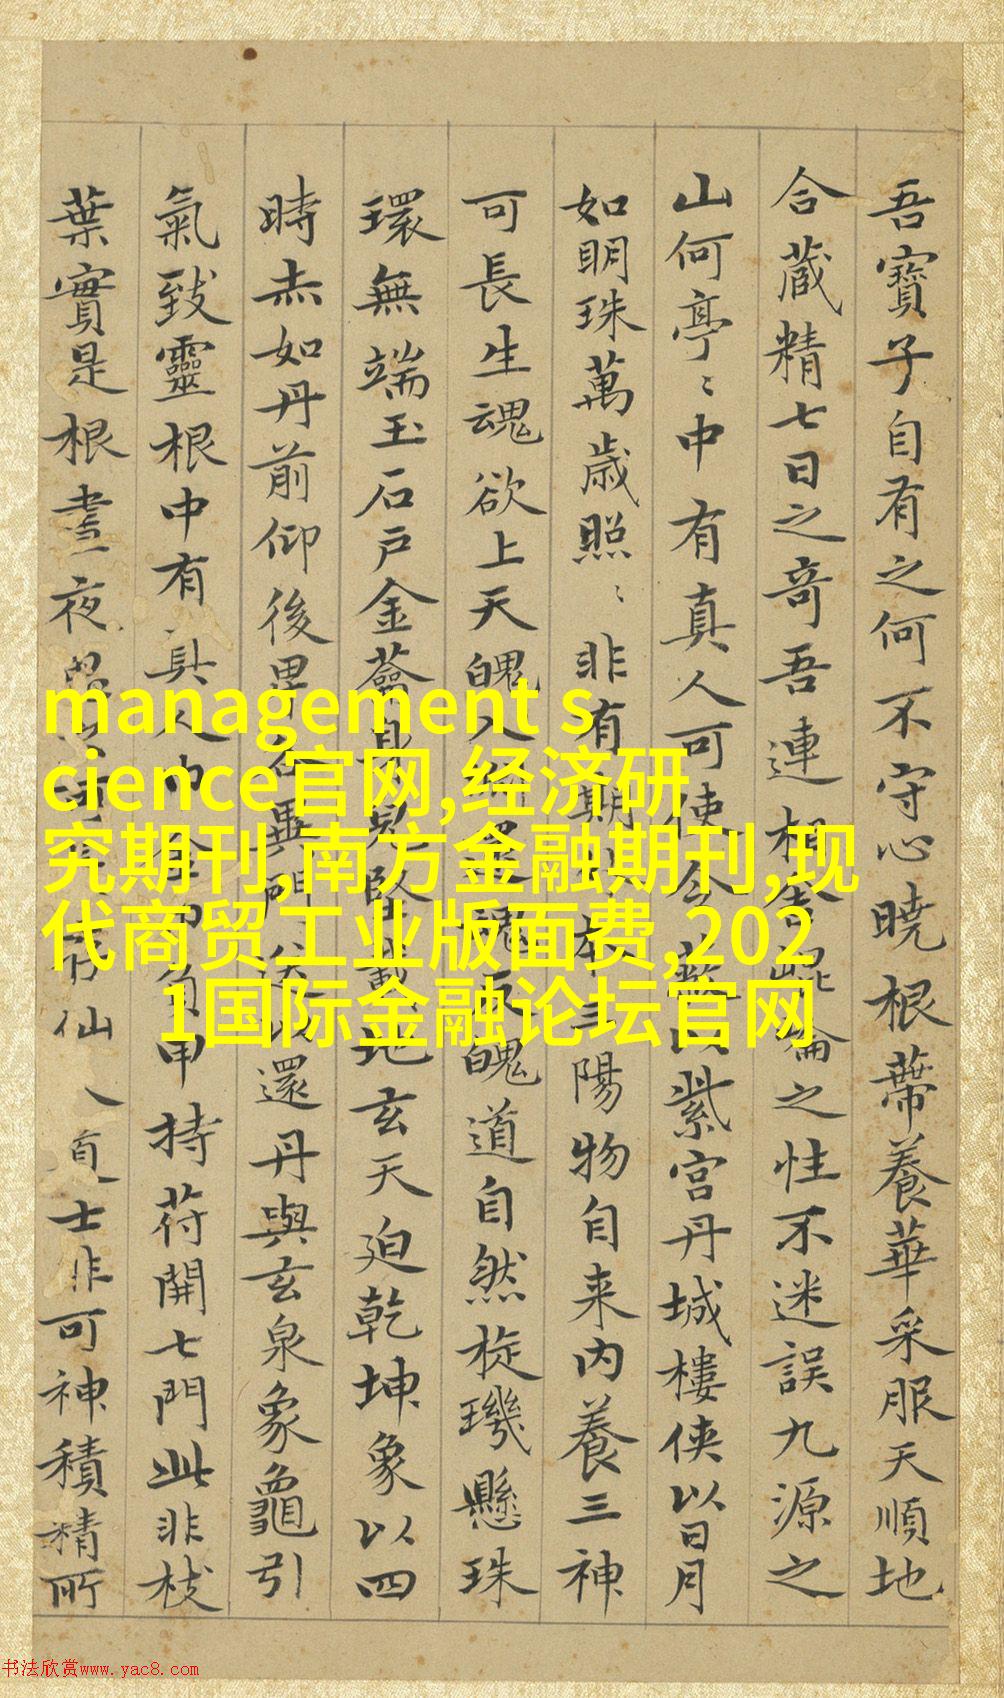 吾寶子自有之何不守心曉根蔕養華采服天順地
合藏精七日之奇吾連相舍崐崘之性不迷誤九源之
山何亭〻中有真人可使令蔽以紫宫丹城樓侠以日月
如明珠萬歲照〻非有期本三陽物自来内養三神
可長生魂欲上天魄入還魂反魄道自然旋璣懸珠
環無端玉石戶金籥身堅載地玄天迫乾坤象以四
時赤如丹前仰後卑各異門送以還丹與玄泉象龜引
氣致靈根中有真人巾金巾負甲持苻開七門此非枝
葉實是根晝夜仙人士非可神積精所
management s
cience官网,经济研
究期刊,南方金融期刊,现
代商贸工业版面费,202
1国际金融论坛官网
书法欣赏www.yac8.com